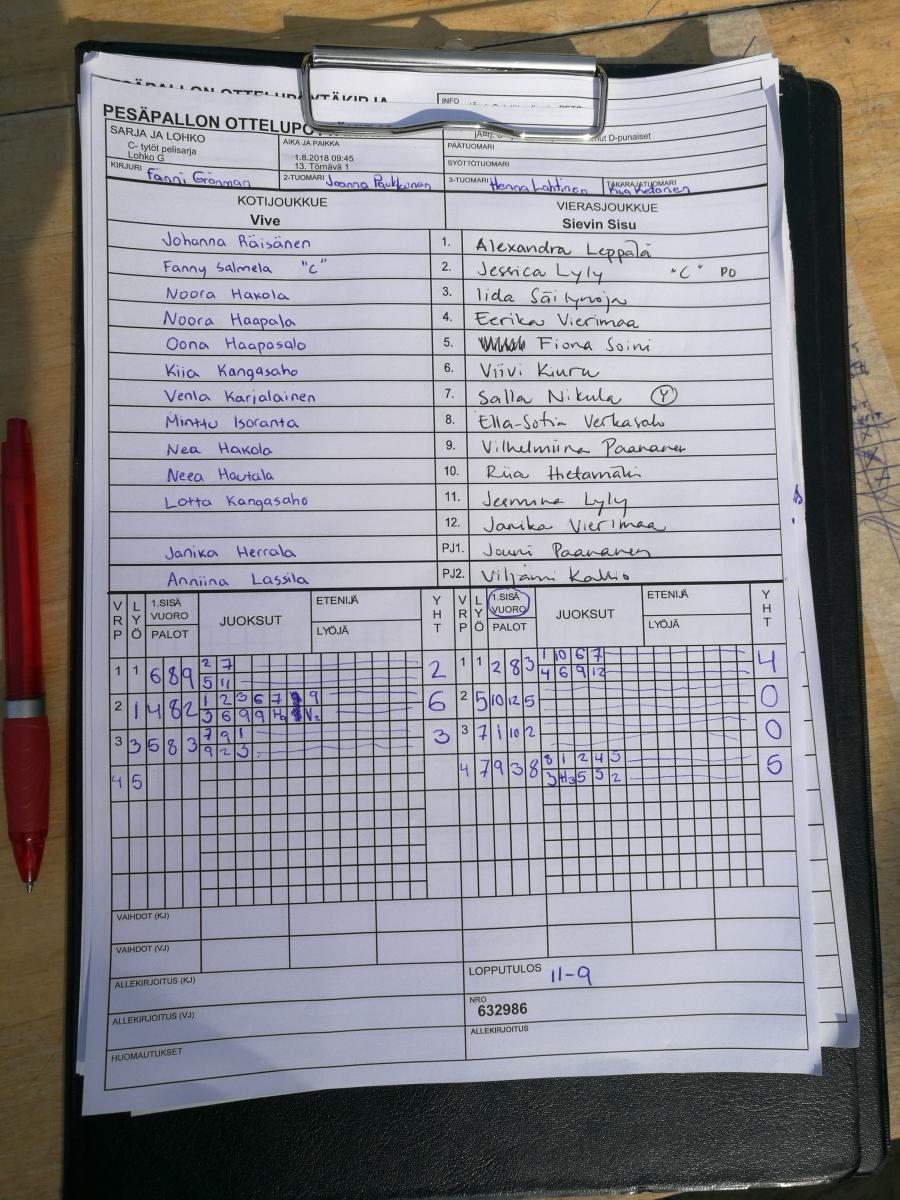 PESÄPALLON OTTELUPÖYTÄKIRJA
INFO
PESÄPALLON OTTELUPÖ
SARJA JA LOHKO
C- tytöt pelisarja
Lohko G
AIKA JA PAIKKA
1.8.2018 09:45
13. Törnävä 1
D-punaiset
PÄÄTUOMARI
SYÖTTÖTUOMARI
KIRJURI Fanni Grönman
2-TUOMARI Joanna Paukkunen
3-TUOMARI Henna Lahtinen
TAKARAJATUOMARI Kiia Ketonen
KOTIJOUKKUE VIERASJOUKKUE
Vive Sievin Sisu
Johanna Räisänen 1. Alexandra Leppälä
Fanny Salmela "C" 2. Jessica Lyly "C" PO
Noora Hakola 3. Iida Säilynoja
Noora Haapala 4. Eerika Vierimaa
Oona Haapasalo 5. Fiona Soini
Kiia Kangasaho 6. Viivi Kiuru
Venla Karjalainen 7. Salla Nikula Y
Minttu Isoranta 8. Ella-Sofia Verkasalo
Nea Hakola 9. Vilhelmiina Paananen
Neea Hautala 10. Riia Hietamäki
Lotta Kangasaho 11. Jasmina Lyly
12. Janika Vierimaa
Janika Herrala PJ1. Jouni Paananen
Anniina Lassila PJ2. Viljami Kallio
VRP LYÖ 1.SISÄ VUORO PALOT JUOKSUT ETENIJÄ LYÖJÄ YHT VRP LYÖ 1.SISÄ VUORO PALOT JUOKSUT ETENIJÄ LYÖJÄ YHT
1 1 6 8 9 2 7 2 1 1 2 8 3 1 10 6 7 4
5 11 4 6 9 12
2 1 4 8 2 1 2 3 6 7 9 6 2 5 10 12 5 0
3 6 9 9
3 3 5 8 3 7 9 1 3 3 7 1 10 2 0
9 2 3
4 5 4 7 9 3 8 8 1 2 4 3 5
3 H3 5 5 2
VAIHDOT (KJ)
VAIHDOT (VJ)
ALLEKIRJOITUS (KJ)
LOPPUTULOS 11-9
ALLEKIRJOITUS (VJ)
NRO
632986
HUOMAUTUKSET
ALLEKIRJOITUS